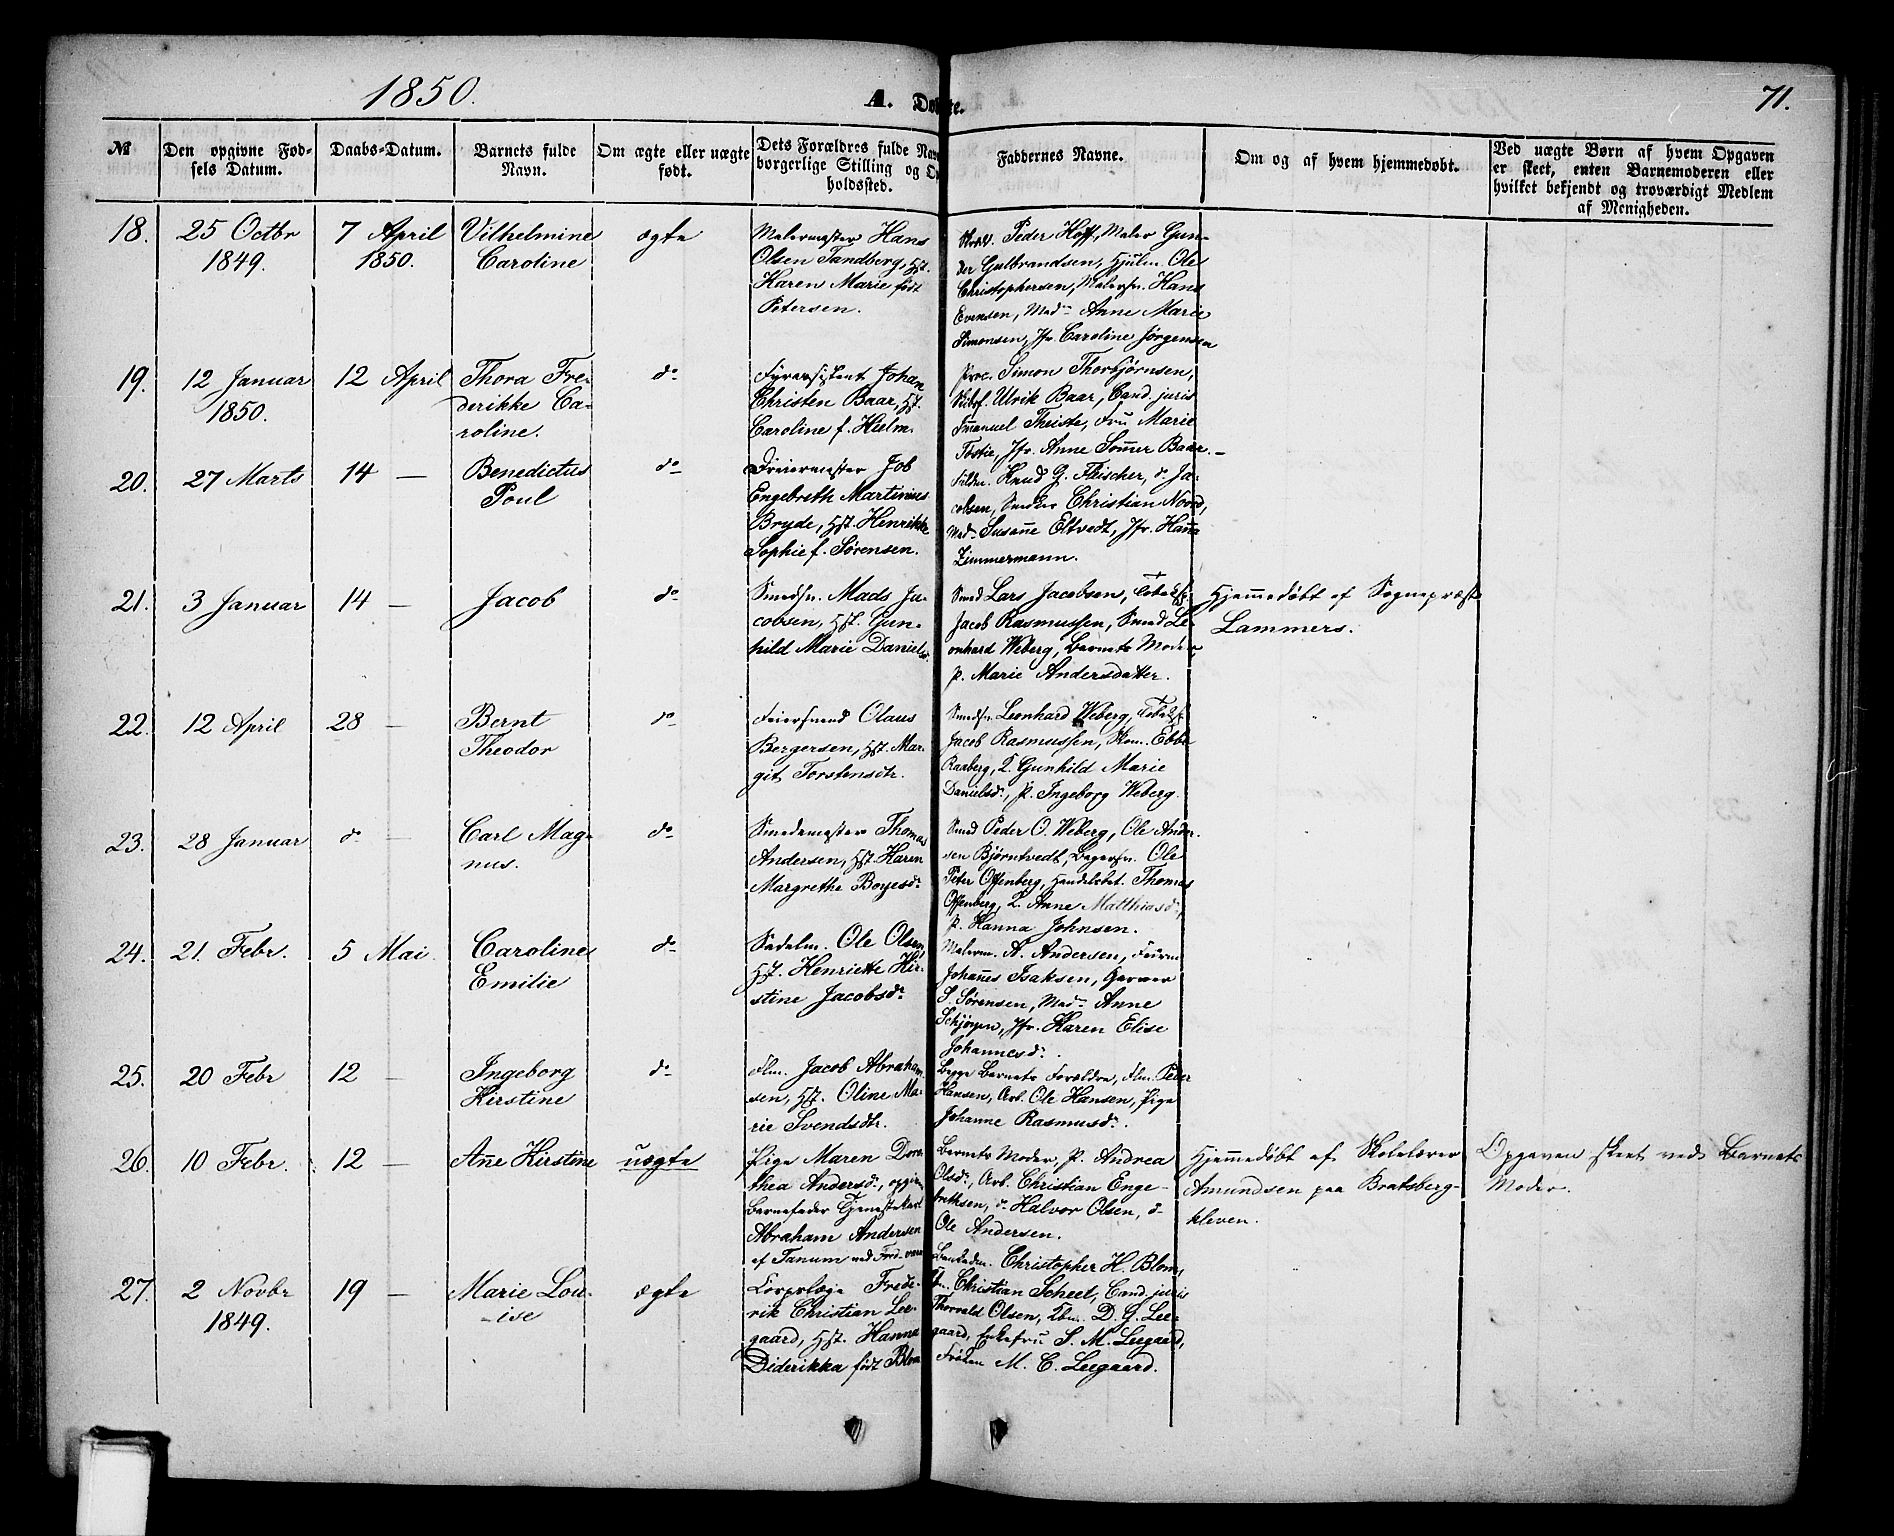 1850.
A. Døbte.
71.
№
Den opgivne Fød-
sels Datum.
Daabs-Datum.
Barnets fulde
Navn.
Om ægte eller uægte
født.
Dets Forældres fulde Nav
borgerlige Stilling og O
holdssted.
Faddernes Navne.
Om og af hvem hjemmedøbt.
Ved uægte Børn af hvem Opgaven
er skeet, enten Barnemoderen eller
hvilket bekjendt og troværdigt Medlem
af Menigheden.
18.
25 Octbr
1849.
7 April
1850.
Vilhelmine
Caroline
ægte
Malermester Hans
Olsen Tandberg, Hst.
Karen Marie født
Petersen.
Peder Hoff, Maler Gun-
der Gulbrandsen, Hjulm. Ole
Christophersen, Malersv. Hans
Evensen, Mad. Anne Marie
Simonsen, Jfr Caroline Jørgensen
19.
12 Januar
1850.
12 April
Thora Fre-
derikke Ca-
roline.
do
Fyrassistent Johan
Christen Baar, Hst.
Caroline f. Hielm.
Proc. Simon Thorbjørnsen,
Skibsf. Ulrik Baar, Cand. juris
Emanuel Theiste, Fru Marie
Jfr. Anne Somer Baar. –
20.
27 Marts
14 –
Benedictus
Poul
do
Dreiermester Job
Engebreth Martinius
Bryde, Hst. Henrikke
Sophie f. Sørensen.
Knud G. Fleischer, do Ja-
cobsen, Snedker Christian Noord,
Mad. Susanne Eltvedt, Jfr. Hanna
Zimmermann.
21.
3 Januar
14 –
Jacob
do
Smedsv. Mads Ja-
cobsen, Hst. Gun-
hild Marie Daniels
Smed Lars Jacobsen,
Jacob Rasmussen, Smed Le-
onhard Weberg, Barnets Moder
P. Marie Andersdatter.
Hjemmedøbt af Sognepræst
Lammers.
22.
12 April
28 –
Bernt
Theodor
do
Feiersvend Olaus
Bergersen, Hst. Mar-
git Torstensdtr.
Smedsv. Leonhard Weberg,
Jacob Rasmussen, Ebbe
Raaberg, K. Gunhild Marie
Danielsd., P. Ingeborg Weberg.
23.
28 Januar
do –
Carl Mag-
nus.
do
Smedemester Thomas
Andersen, Hst. Karen
Margrethe Boyesdr
Smed Peder O. Weberg, Ole Ander-
sen Bjørntvedt, Bagersv. Ole
Peter Offenberg, Handelsbet. Thomas
Offenberg, K. Anne Matthiasd.,
P. Hanna Johnsen.
24.
21. Febr.
5 Mai.
Caroline
Emilie
do
Sadelm. Ole Olsen,
Hst. Henriette Kir-
stine Jacobsdr
Malerm. A. Andersen,
Johannes Isaksen, Garver
S. Sørensen, Mad. Anne
Schjørgen, Jfr. Karen Elise
Johannesd.
25.
20 Febr
12 –
Ingeborg
Kirstine
do
Flm. Jacob Abraham
sen, Hst. Oline Ma-
rie Svendsdtr.
Begge Barnets Forældre, Flm. Peder
Hansen, Arb. Ole Hansen, Pige
Johanne Rasmusd.
26.
10 Febr.
12 –
Ane Kirstine
uægte
Pige Maren Doro
thea Andersd., opgiven
Barnefader Tjenestekarl
Abraham Andersen
af Tanum ved Fred-værn
Barnets Moder, P. Andrea
Olsd., Arb. Christian Enge-
brethsen, do Halvor Olsen, do
Ole Andersen.
Hjemmedøbt af Skolelærer
Amundsen paa Bratsberg-
kleven.
Opgaven skeet ved Barnets
Moder.
27.
2 Novbr
1849.
19 –
Marie Lou-
-ise
ægte
Corpslæge Frede-
rik Christian Lee-
gaard, Hst. Hanna
Diderikka født Blom
Christopher H. Blom,
Christian Scheel, Cand. juris
Thorvald Olsen, D. G. Lee-
gaard, Enkefru S. M. Leegaard,
Frøken M. C. Leegaard.